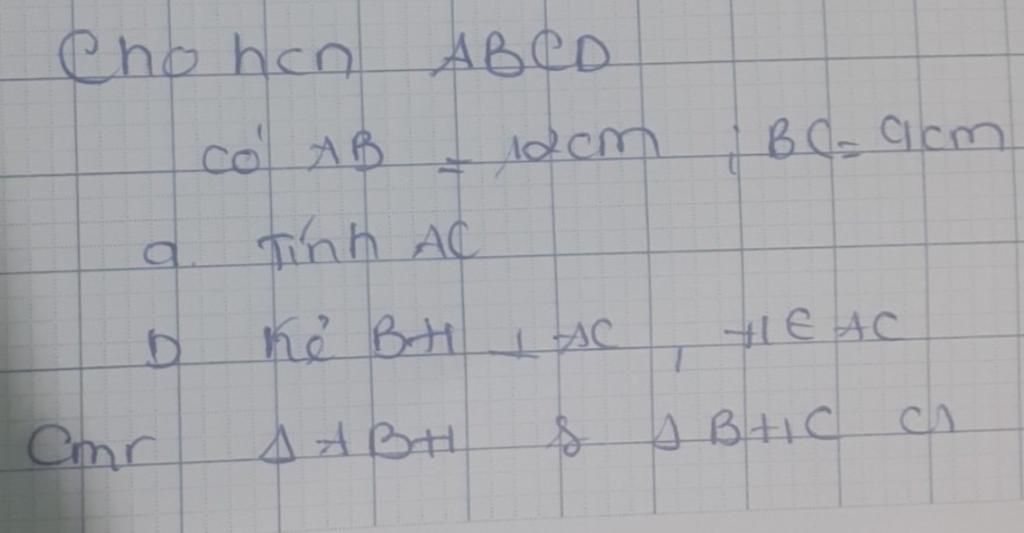 Cho hcn ABCD
có AB = 12cm ; BC = 9cm
a. Tính AC
b Kẻ BH ⊥ AC , H ∈ AC
Cmr Δ ABH & Δ BHC